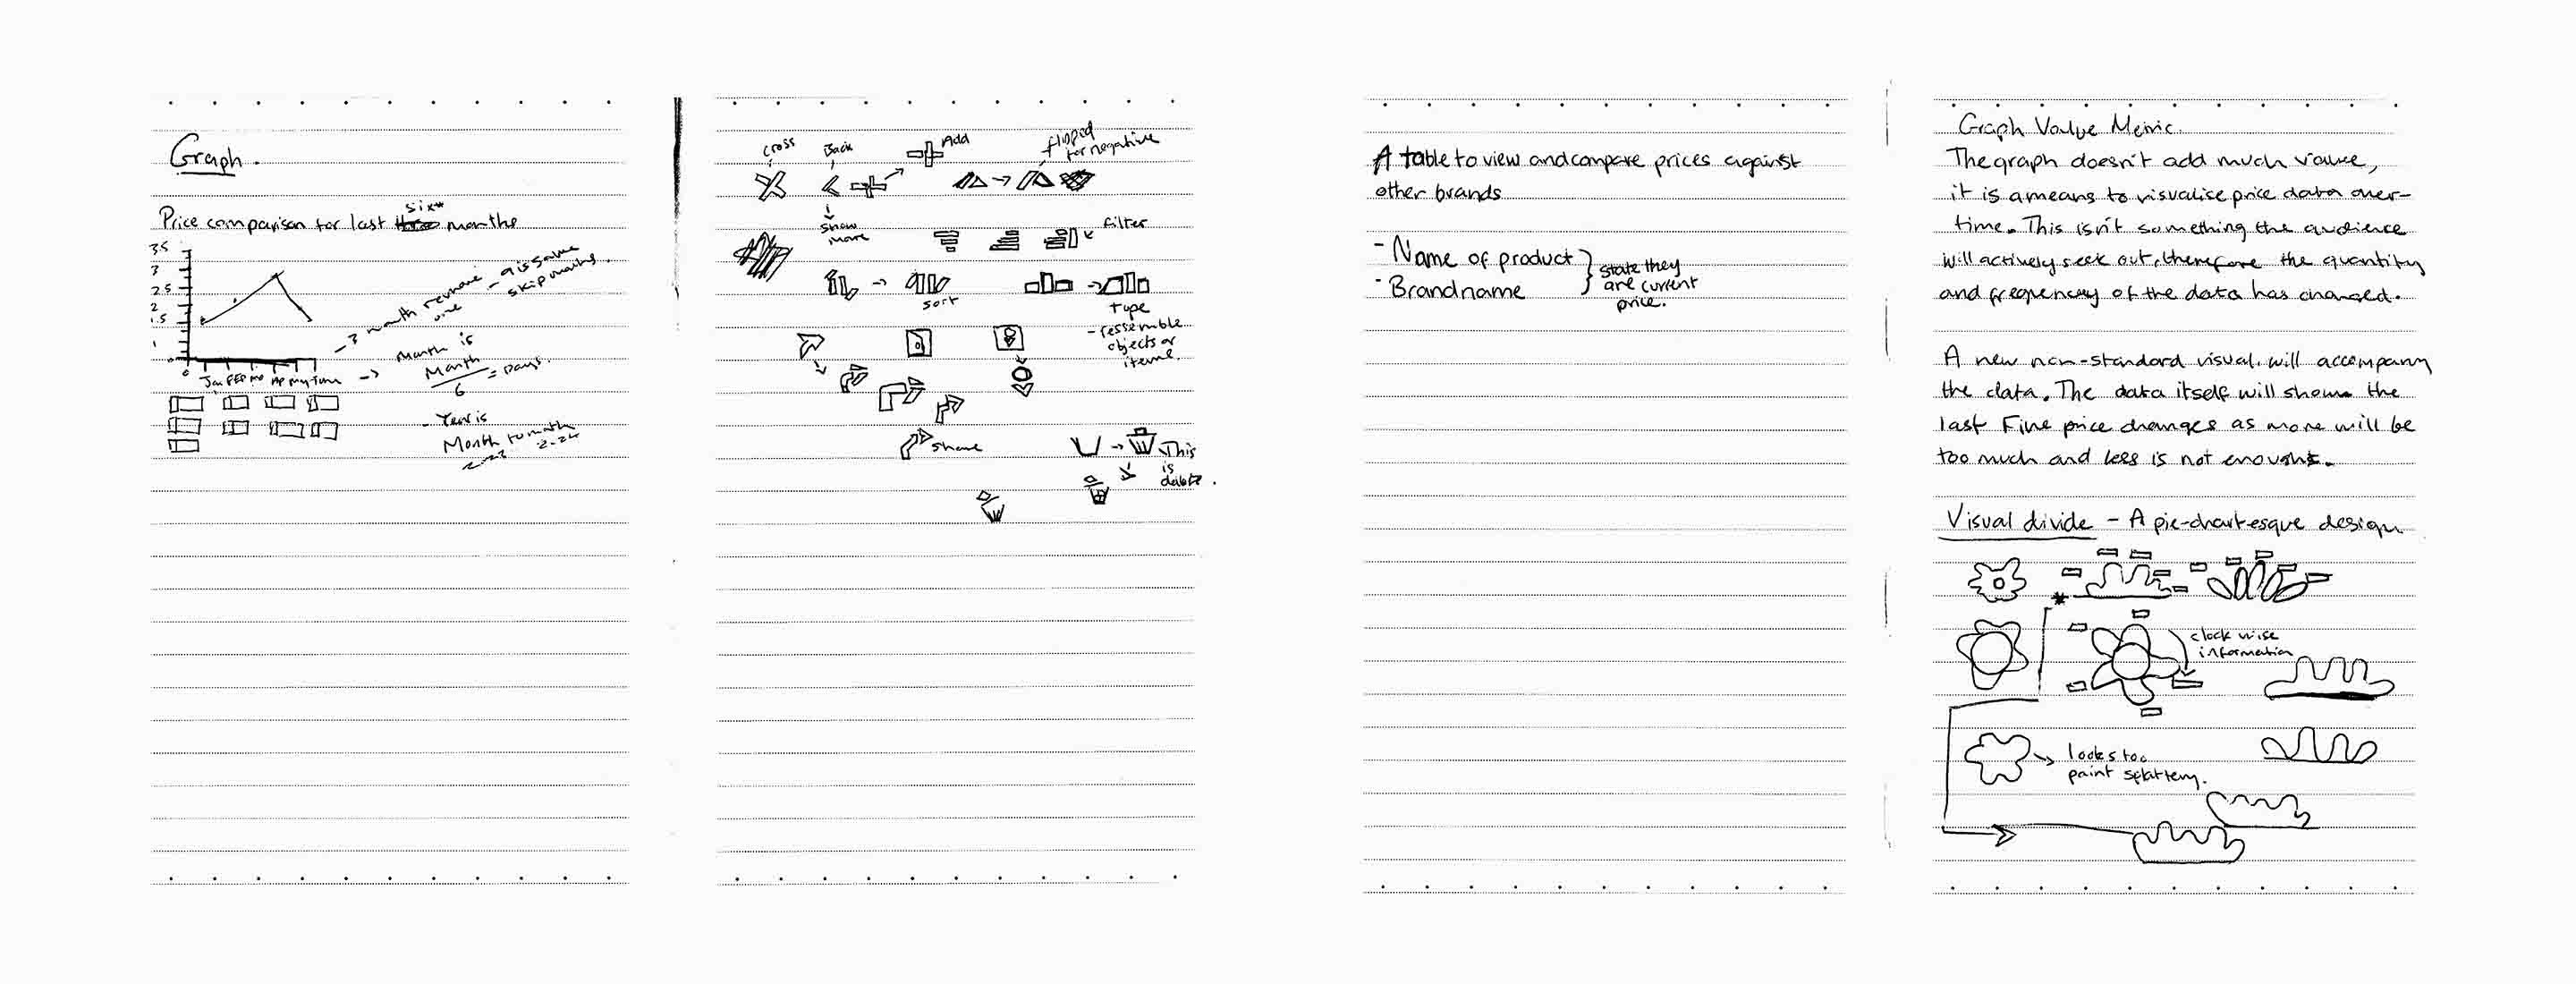 Graph.
six*
Price comparison for last months
3.5
3
2.5
2
1.5
1
0
Jan FEB
- 3 month remove one
- 9 is same skip months.
-> Month is
Month
6
= Days.
- Year is
Month to month
2023 2024
Cross
Back
Add
flipped
for negative
show
more
filter
sort
type
- ressemble
objects or
items.
share
This
is
delete.
A table to view and compare prices against
other brands
- Name of product
- Brandname
state they
are current
price.
Graph Value Metric.
The graph doesn't add much value,
it is a means to visualise price data over-
time. This isn't something the audience
will actively seek out, therefore the quantity
and frequency of the data has changed.
A new non-standard visual will accompany
the data. The data itself will show the
last Five price changes as more will be
too much and less is not enough.
Visual divide - A pie-chart-esque design
clock wise
information
looks too
paint splattery.